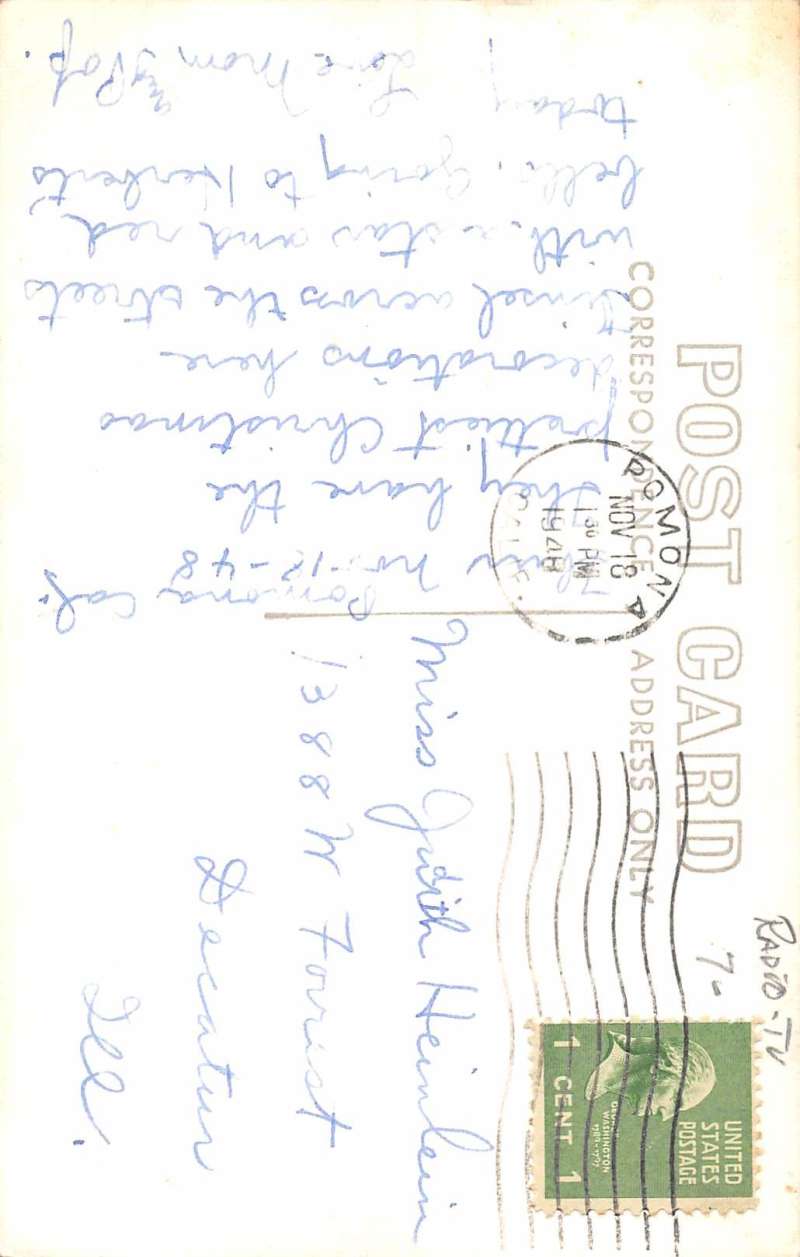 POST CARD
CORRESPONDENCE
ADDRESS ONLY
RADIO-TV
7-
UNITED
STATES
POSTAGE
GEORGE
WASHINGTON
1789-1797
1 CENT 1
POMONA
NOV 18
1 30 PM
1948
CALIF.
Pomona Cal.
Nov-18-48
They have the
prettiest Christmas
decorations here
tinsel across the streets
with a star and red
bells. Going to Herberts
today
Love Mom & Pop.
Miss Judith Heinlein
1388 W Forrist
Decatur
Ill.